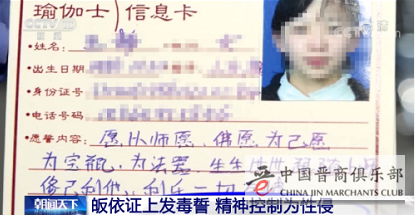 CCTV
瑜伽士)信息卡
姓名:
出生日期
身份证号
电话号码:
愿誓内容: 愿从师愿,佛愿为己愿
为宝瓶,为法器,生生世世
修己利他,利乐一切
中国晋商俱乐部
CHINA JIN MERCHANTS CLUB
朝闻天下
皈依证上发毒誓 精神控制为性侵